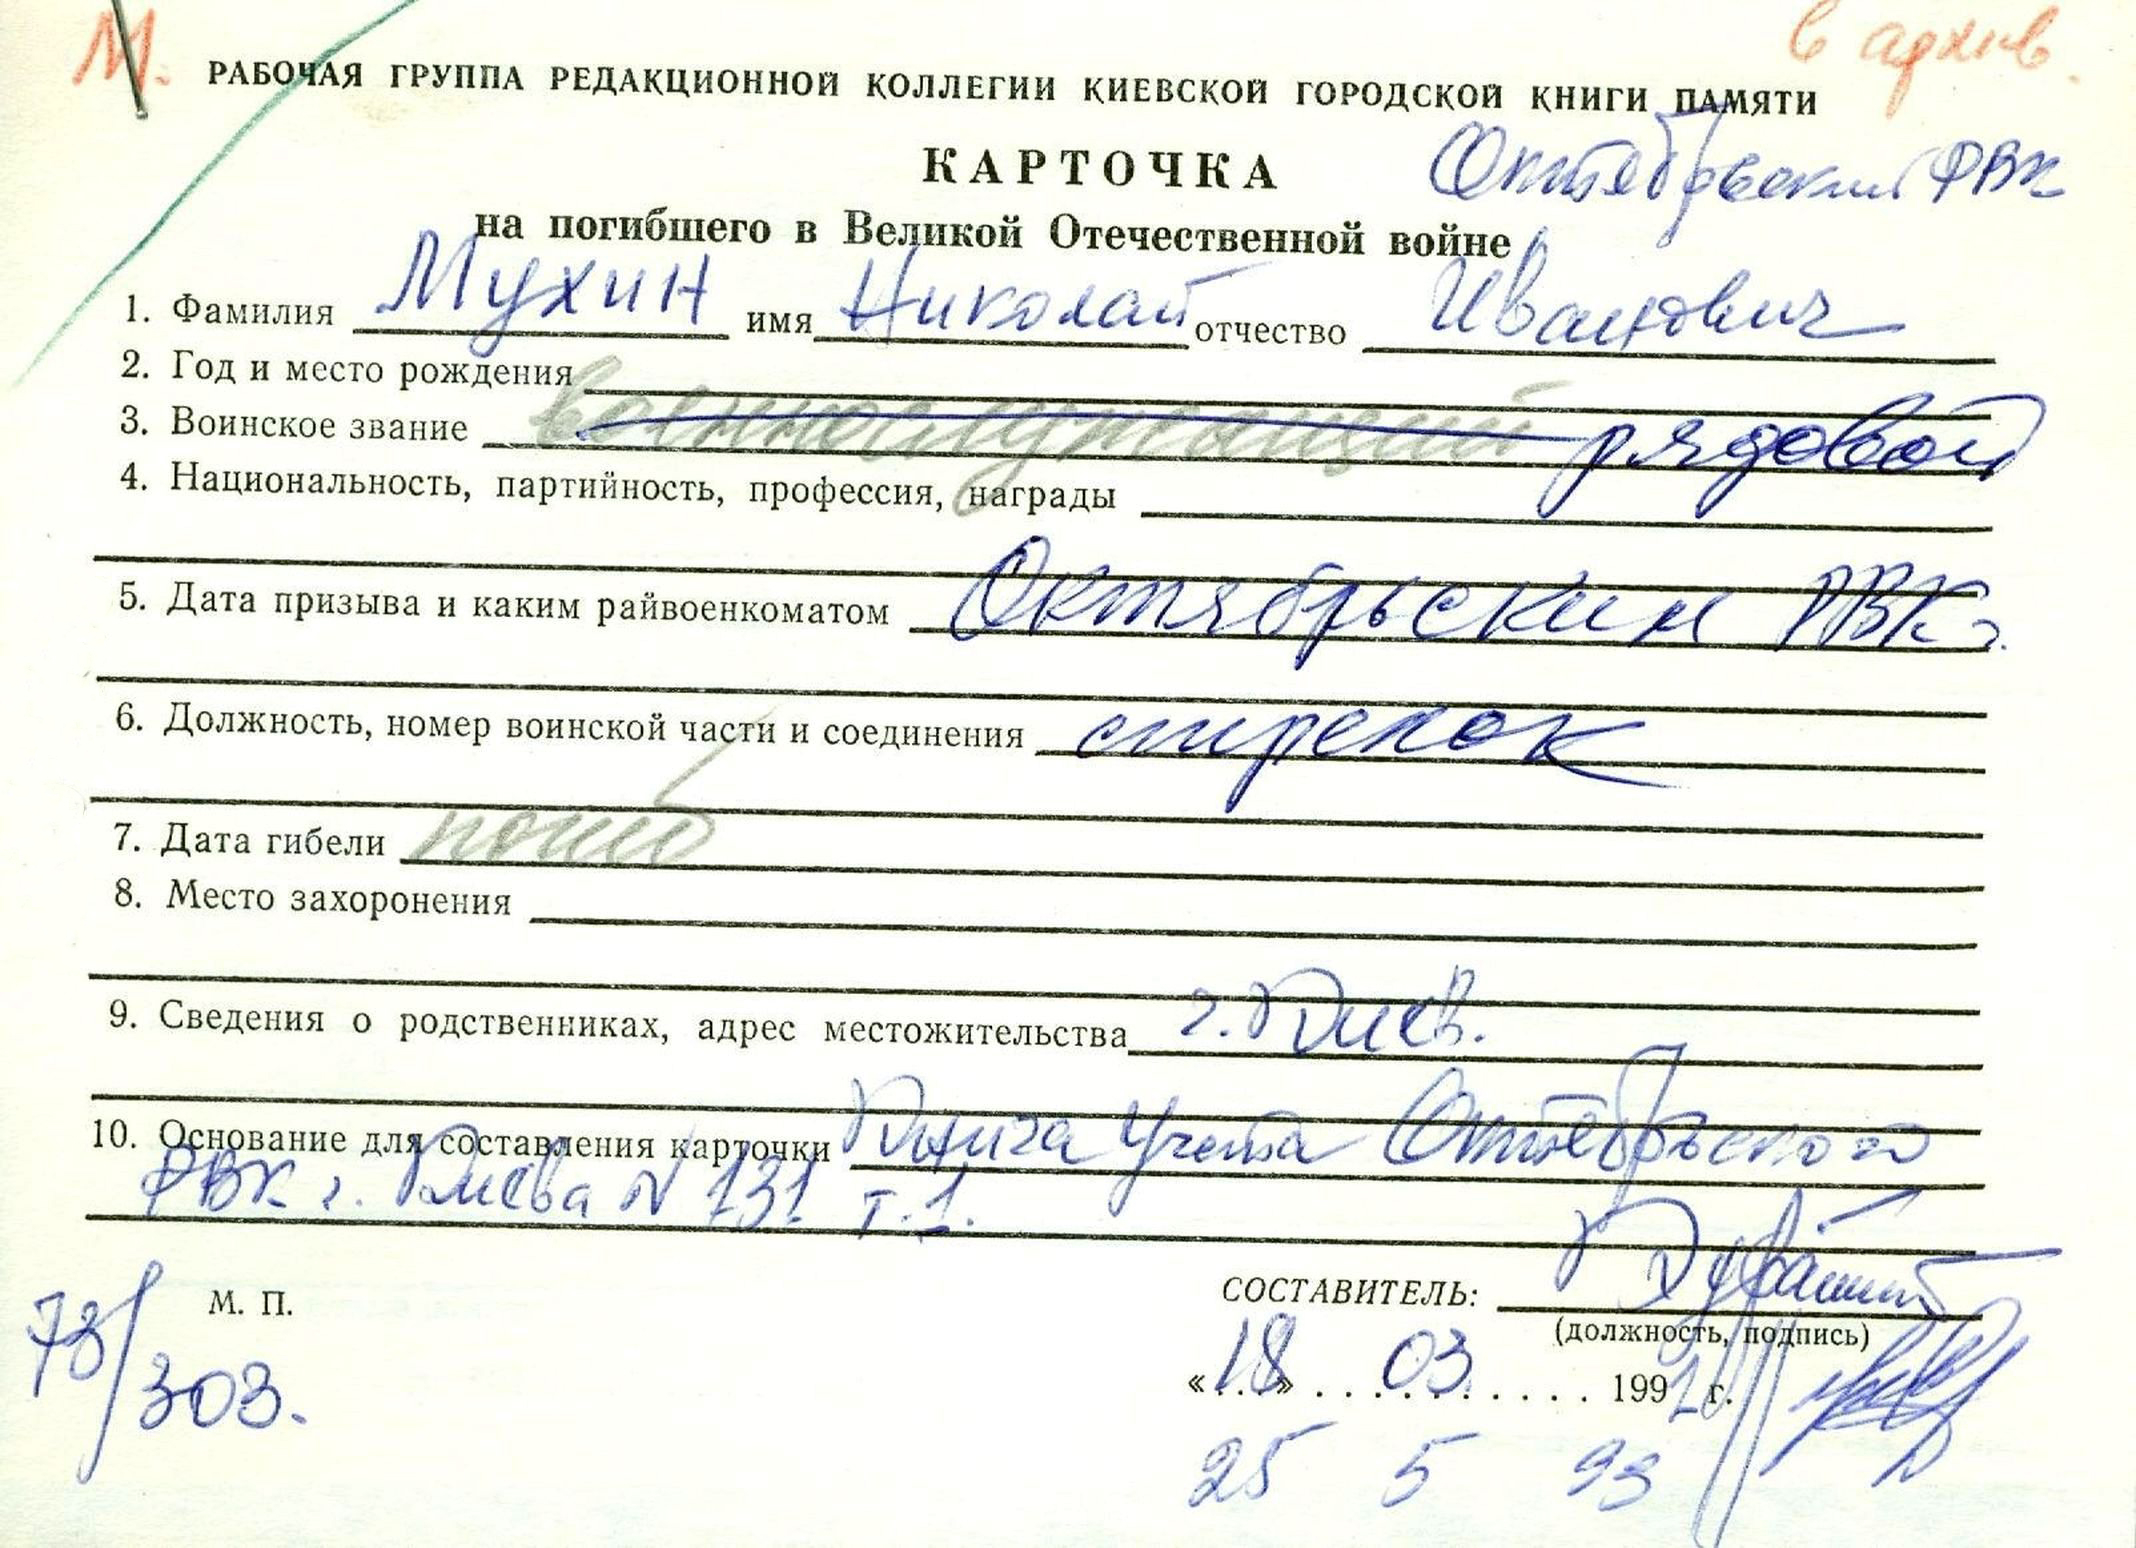 М.
в архив.
РАБОЧАЯ ГРУППА РЕДАКЦИОННОЙ КОЛЛЕГИИ КИЕВСКОЙ ГОРОДСКОЙ КНИГИ ПАМЯТИ
КАРТОЧКА
Октябрьский РВК
на погибшего в Великой Отечественной войне
1. Фамилия Мухин имя Николай отчество Иванович
2. Год и место рождения
3. Воинское звание военнослужащий рядовой
4. Национальность, партийность, профессия, награды
5. Дата призыва и каким райвоенкоматом Октябрьским РВК
6. Должность, номер воинской части и соединения стрелок
7. Дата гибели погиб
8. Место захоронения
9. Сведения о родственниках, адрес местожительства г. Киев.
10. Основание для составления карточки Книга Учета Октябрьского
РВК г. Киева № 131 т.1.
М. П.
73/303.
СОСТАВИТЕЛЬ:
(должность, подпись)
«18» 03 1992 г.
25 5 93